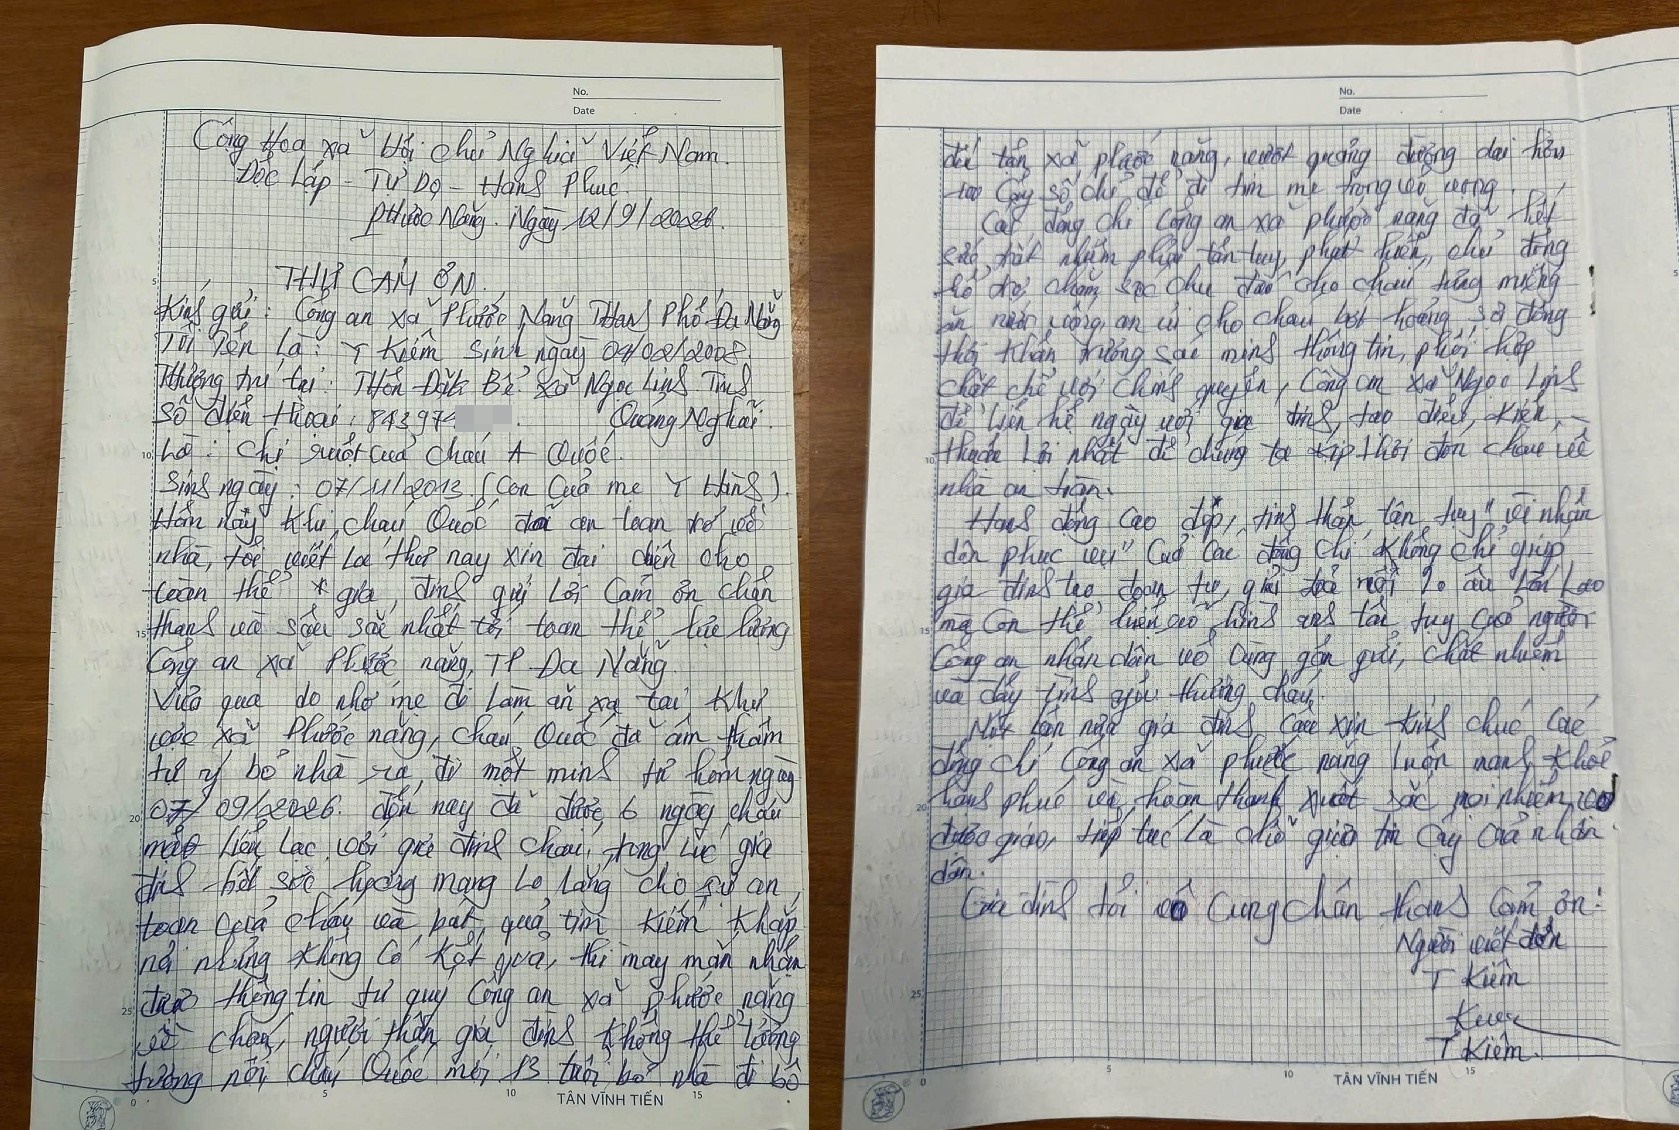 No.
Date
Cộng Hoa xã Hội chủ Nghĩa Việt Nam.
Độc Lập - Tự Do - Hanh Phuc.
Phước Năng. Ngày 12/9/2026.
THƯ CẢM ƠN.
Kính gửi: Công an xã Phước Năng Thành Phố Đà Nẵng
Tôi Tên Là: Y Kiêm Sinh ngày 04/02/2008.
Thường trú tại: Thôn Đăk Bể xã Ngọc Linh Tỉnh
số điện thoại: 843974 Quảng Nghãi.
Là: chị ruột của cháu A Quốc.
Sinh ngày: 07/11/2013. (Con Của mẹ Y Hằng).
Hôm nay khi cháu Quốc đã an toan trở về
nhà, tôi viết lá thư nay xin đại diện cho
toàn thể gia đình gửi Lời Cảm ơn chân
thành và sâu sắc nhất tới toan thể lực lượng
Công an xã Phước năng, TP Đa Nẵng.
Vừa qua do nhớ mẹ đi Làm ăn xa tại khu
vực xã Phước năng, cháu Quốc đã âm thầm
tự ý bỏ nhà ra đi một mình từ hôm ngày
07/09/2026. đến nay đã được 6 ngày cháu
mất liên lạc với gia đình cháu, trong lúc gia
đình hết sức hoang mang lo lắng cho sự an
toan của cháu và bất quả tìm kiếm khắp
nơi nhưng không có kết quả, thì may mắn nhận
được thông tin từ quy Công an xã phước năng
về cháu, người thân gia đình không thể lường
tưởng nổi cháu Quốc mới 13 tuổi bỏ nhà đi bộ
5
10
15
20
25
0
5
10
15
TÂN VĨNH TIẾN
No.
Date
đến tận xã phước năng, vượt quảng đường dai hơn
100 Cây số chỉ để đi tìm mẹ trong vô vọng.
Các đồng chí Công an xã phước năng đã hết
sức trách nhiệm phận tận tụy, phát hiện, chủ động
hỗ trợ chăm sóc chu đáo cho cháu từng miếng
ăn nước uống, an ủi cho cháu bớt hoảng sợ đồng
thời khẩn trương xác minh thông tin, phối hợp
chặt chẽ với chính quyền, Công an xã Ngọc Linh
để liên hệ ngày với gia đình, tạo điều kiện
thuận lợi nhất để chúng tôi kịp thời đón cháu về
nhà an toàn.
Hành động cao đẹp, tinh thần tận tụy" vì nhân
dân phục vụ" của các đồng chí không chỉ giúp
gia đình tôi đoan tụ, giải toả nỗi lo âu lớn lao
mà còn thể hiện rõ hình ảnh tận tụy của người
Công an nhân dân vô cùng gần gũi, chất nhiệm
và đầy tình yêu thương cháu.
Một Lần nữa gia đình cháu xin kính chúc các
đồng chí Công an xã phước năng luôn mạnh khỏe
hạnh phúc và hoàn thành xuất sắc mọi nhiệm vụ
được giao, tiếp tục là chỗ giựa tin cậy của nhân
dân.
Gia đình tôi vô cùng chân thành cảm ơn!
Người viết đơn
Y Kiêm
Kiêm
Y Kiêm.
5
10
15
20
25
0
5
10
15
TÂN VĨNH TIẾN